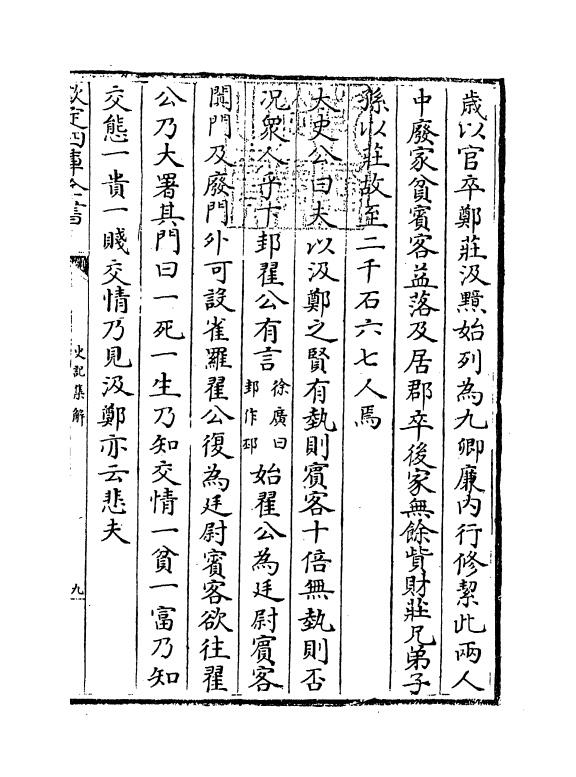 歳以官卒鄭莊汲黯始列為九卿廉内行修絜此兩人
中廢家貧賓客益落及居郡卒後家無餘貲財莊兄弟子
孫以莊故至二千石六七人焉
太史公曰夫以汲鄭之賢有埶則賓客十倍無埶則否
况衆人乎下邽翟公有言
徐廣曰
邽作邳
始翟公為廷尉賓客
闐門及廢門外可設雀羅翟公復為廷尉賓客欲往翟
公乃大署其門曰一死一生乃知交情一貧一富乃知
交態一貴一賤交情乃見汲鄭亦云悲夫
欽定四庫全書
史記集解
九